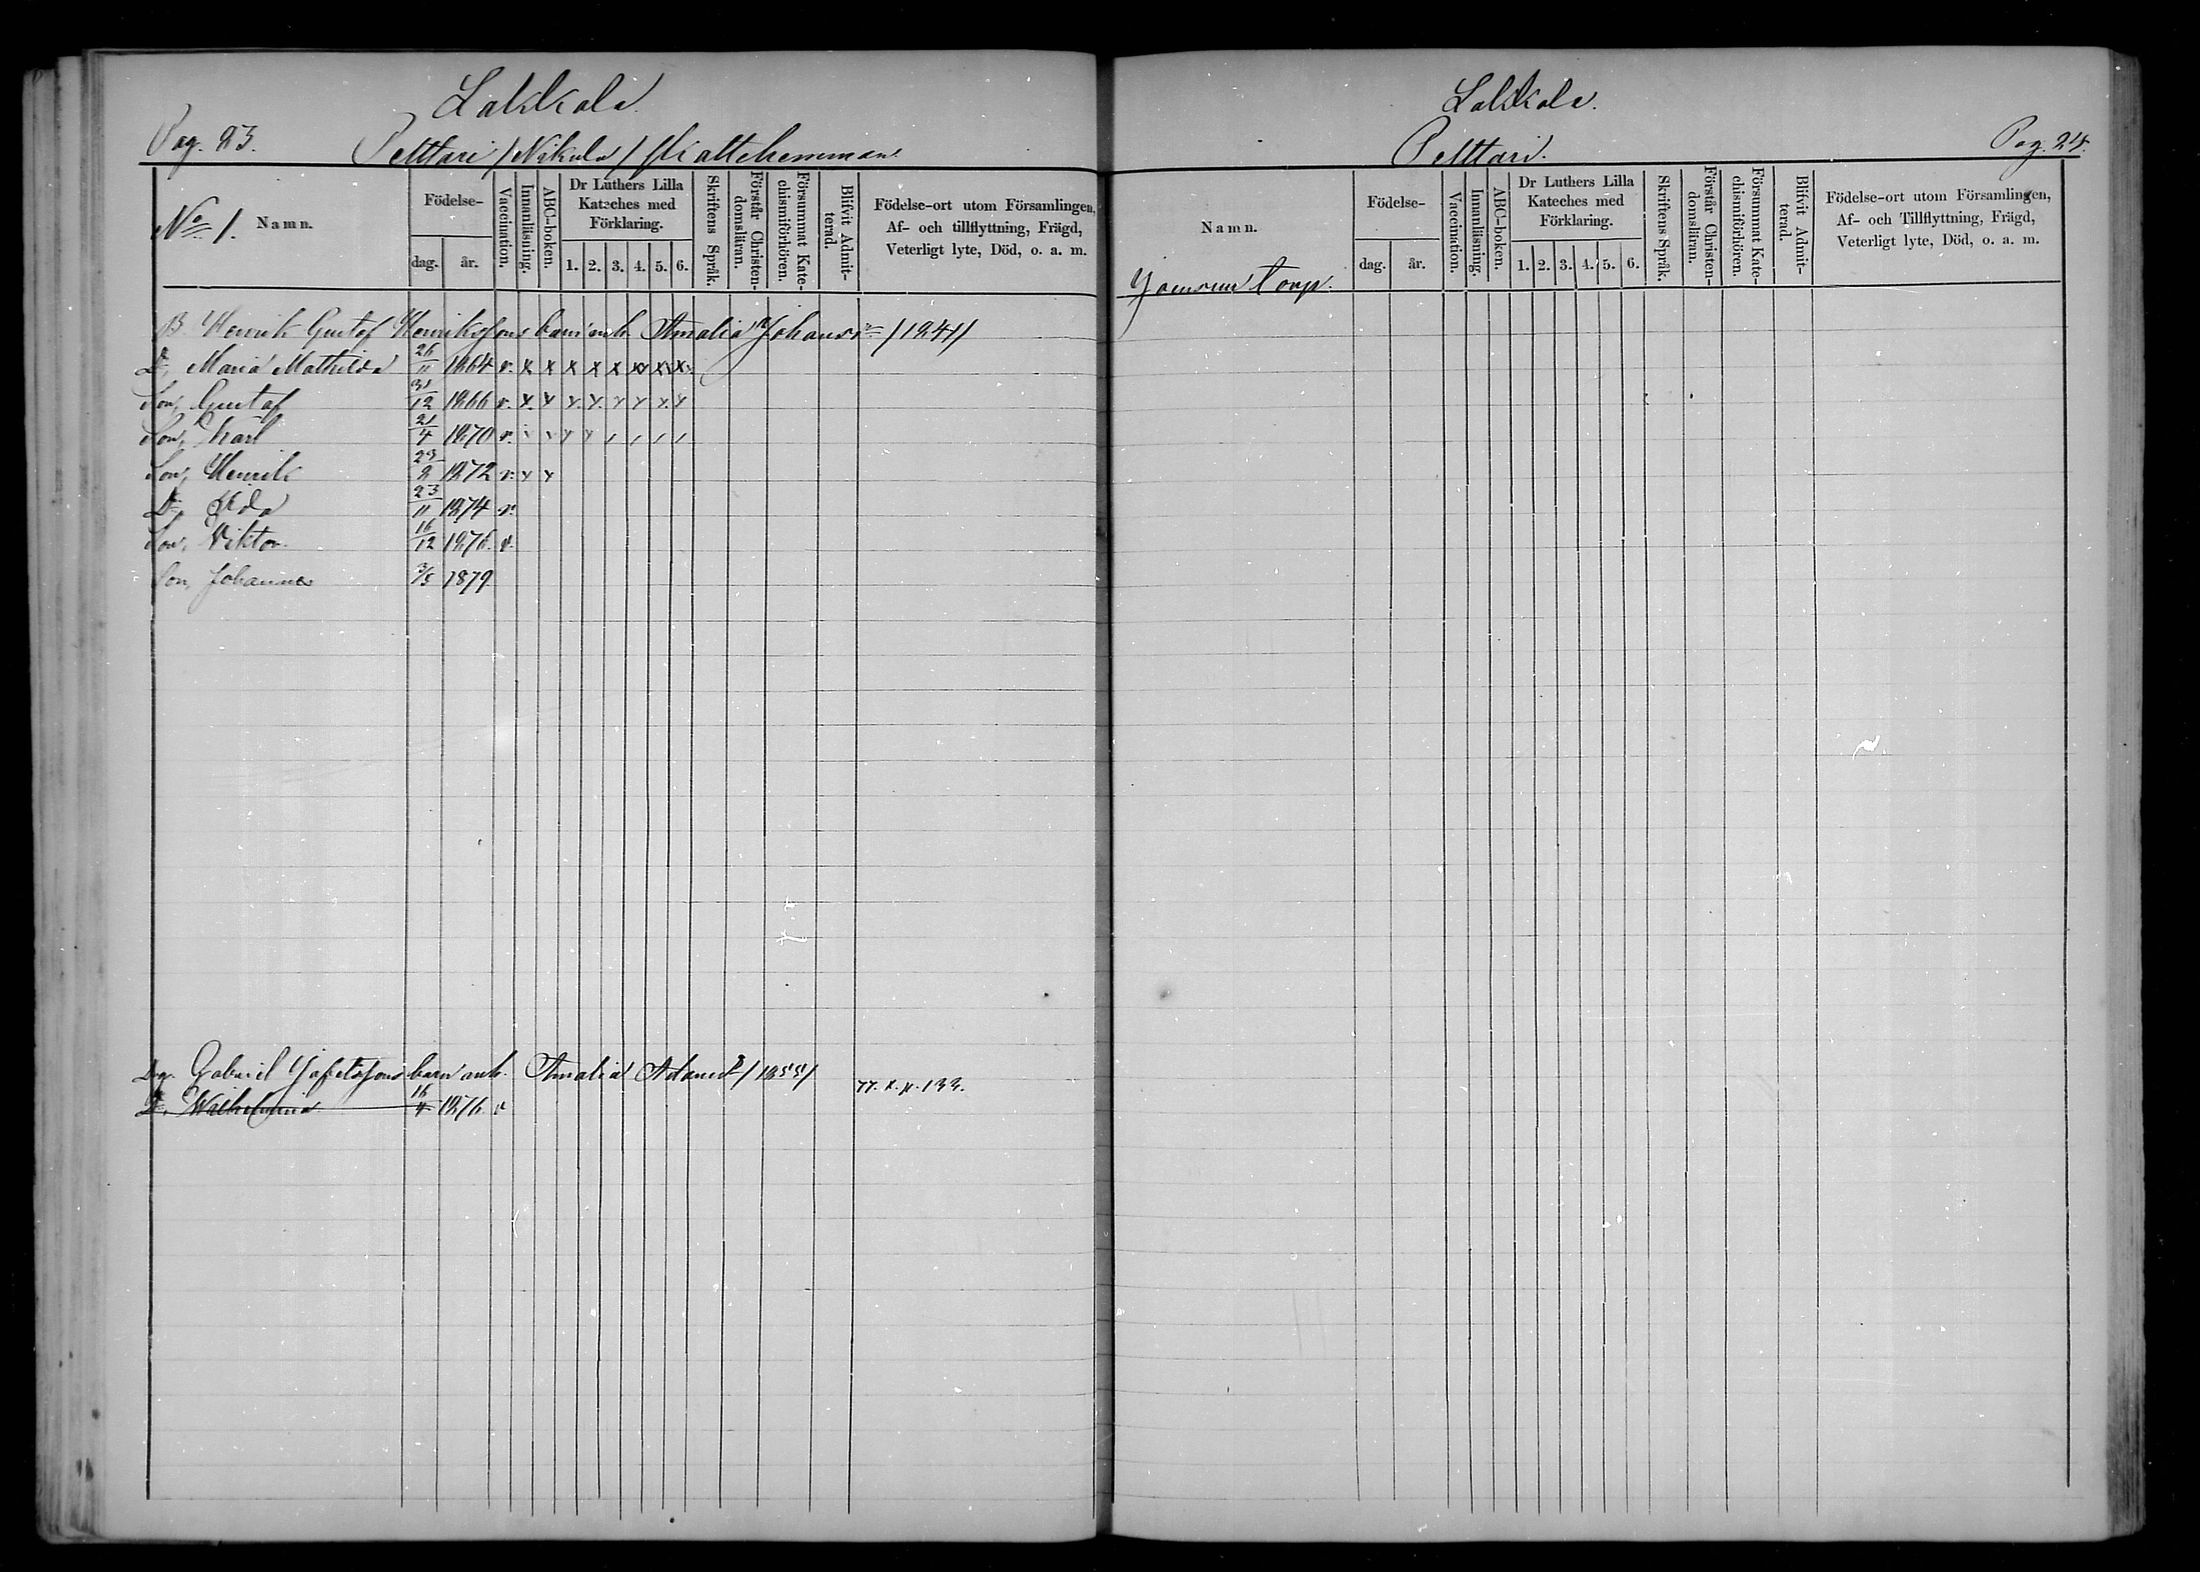 Lakkola.
Pag. 23. Pelttari / Nikula / Skattehemman.
No 1. Namn.
Födelse-
dag. år.
Vaccination.
Innanläsning.
ABC-boken.
Dr Luthers Lilla
Kateches med
Förklaring.
1. 2. 3. 4. 5. 6.
Skriftens Språk.
Förstår Christen-
domsläran.
Försummat Kate-
chismiförhören.
Blifvit Admit-
terad.
Födelse-ort utom Församlingen,
Af- och tillflyttning, Frägd,
Veterligt lyte, Död, o. a. m.
B. Henrik Gustaf Henrikssons barn m. h. Amalia Johansd:r /1841/
D:r, Maria Mathilda 26/11 1864 v. x x x x x x x x
Son, Gustaf 31/12 1866 v. x x x x x x x x
Son, Karl 21/4 1870 v.
Son, Henrik 29/2 1872 v. x x
D:r, Ida 23/11 1874 v.
Son, Viktor 16/12 1876 v.
Son, Johannes 3/5 1879
Drg. Gabriel Jafetssons barn m. h. Amalia Adamsd:r /1855/
D:r, Wilhelmina 16/4 1876 v 77. p. 133.
Lakkola.
Pelttari. Pag. 24.
Namn.
torp.
Födelse-
dag. år.
Vaccination.
Innanläsning.
ABC-boken.
Dr Luthers Lilla
Kateches med
Förklaring.
1. 2. 3. 4. 5. 6.
Skriftens Språk.
Förstår Christen-
domsläran.
Försummat Kate-
chismiförhören.
Blifvit Admit-
terad.
Födelse-ort utom Församlingen,
Af- och Tillflyttning, Frägd,
Veterligt lyte, Död, o. a. m.